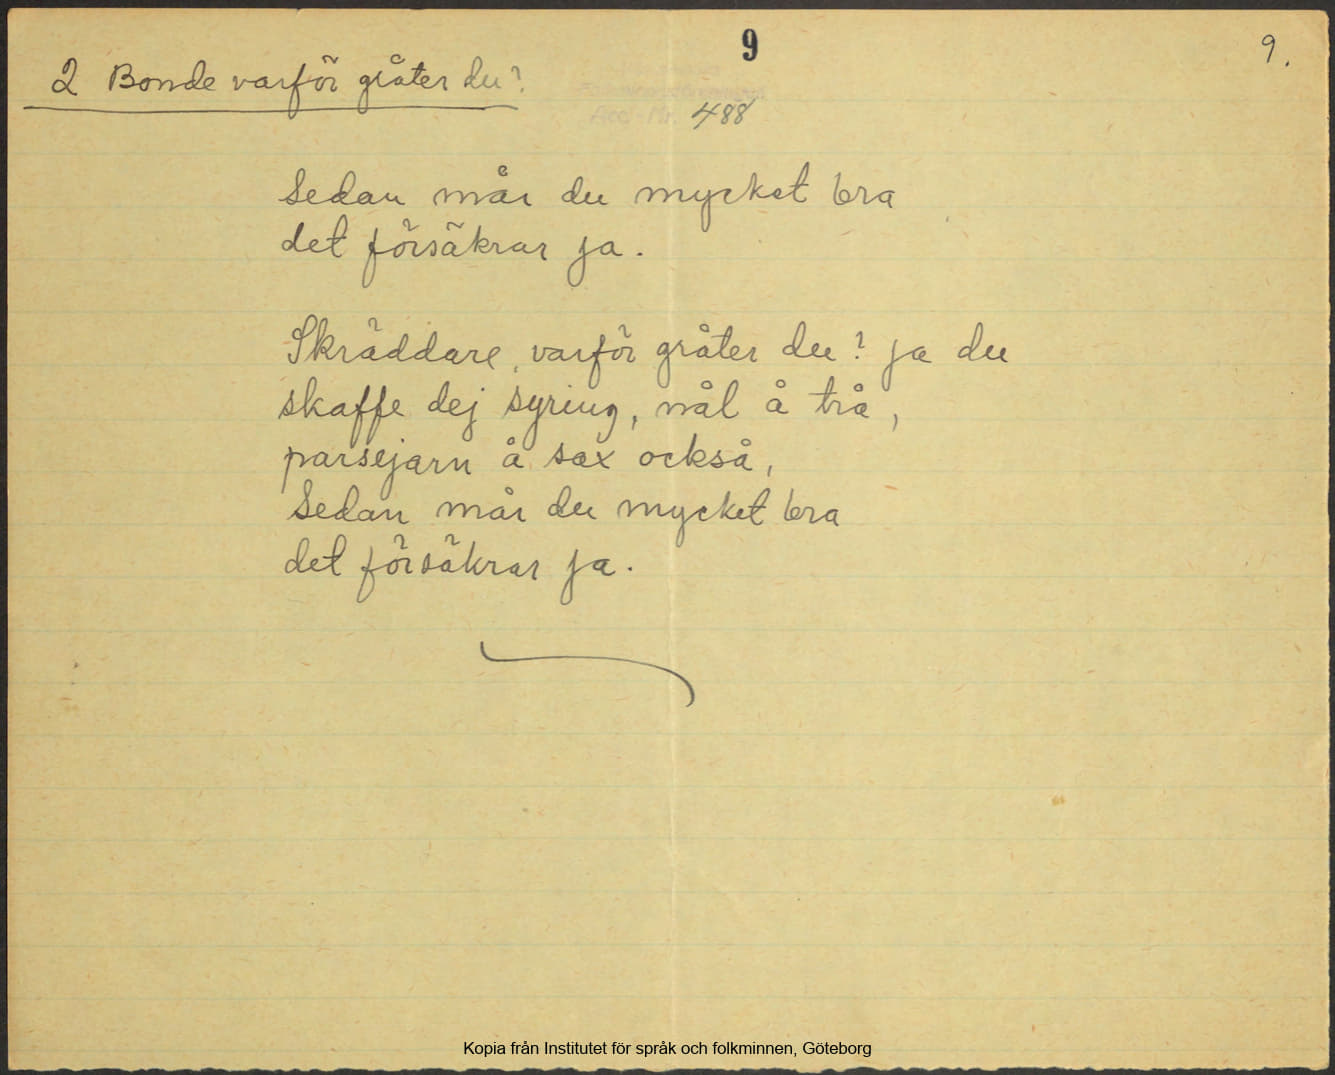 9
9.
2 Bonde varför gråter du?
Acc. Nr. 488
Sedan mår du mycket bra
det försäkrar ja.
Skräddare, varför gråter du? ja du
skaffe dej syring, nål å trå,
parsejarn å sax också,
Sedan mår du mycket bra
det försäkrar ja.
Kopia från Institutet för språk och folkminnen, Göteborg